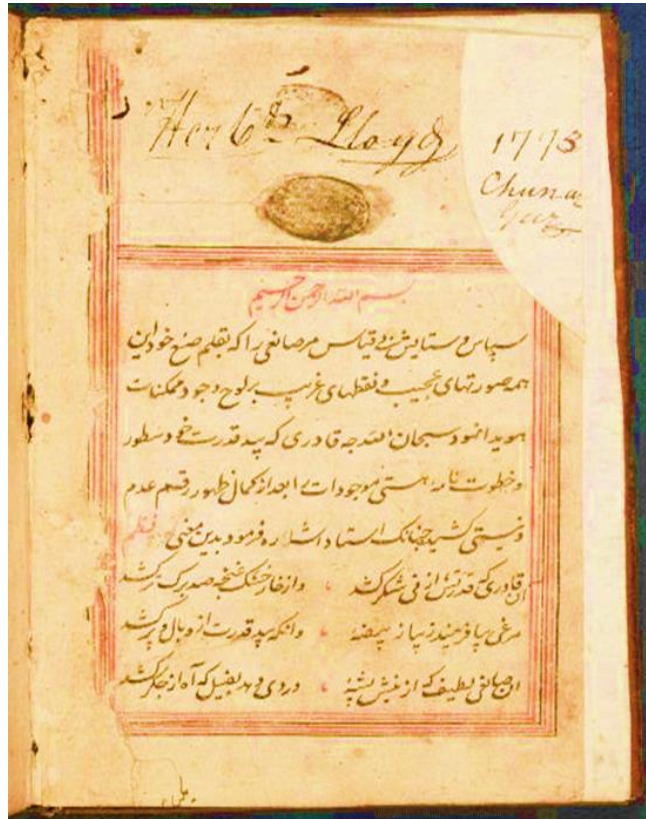 Herbt Lloyd
1773
Chunar
Gur
بسم الله الرحمن الرحیم
سپاس و ستایش و قیاس مر صانعی را که بقلم صنع خود این
همه صورتهای عجیب و نقطهای غریب بر لوح وجود ممکنات
هویدا نمود سبحان الله چه قادری که بید قدرت خود سطور
و خطوت نامه هستی موجودات را بعد از کمال ظهور رقم عدم
و نیستی کشید چنانک استاد اشاره فرمود بدین معنی نظم
آن قادری که قدرتش از نی شکر کشد وز خار خشک غنچه صد برک تر کشد
مرغی بیافریند ز بیضه وانکه بید قدرت از و بال و پر کشد
آن صانعی لطیف که از نیش پشه دردی دهد بفیل که آه از جگر کشد